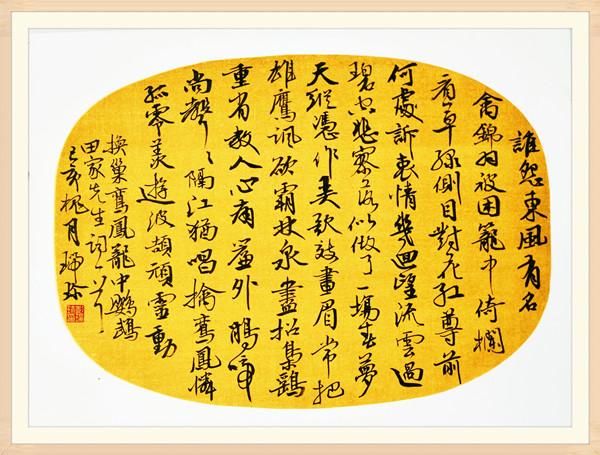 誰怨東風有名
禽錦羽被困籠中倚欄
看草綠側目對花紅尊前
何處訴衷情幾迴望流雲過
碧空悲寥落似做了一場春夢
天縱憑作美歌效畫眉常把
雄鷹諷欲霸林泉盡招集鷄
重省教人心痛簾外鵑啼
尚聲聲隔江猶唱擒鸞鳳憐
孤零羨遊波頡頏靈動
換巢鸞鳳籠中鸚鵡
田家先生詞一首
己亥槐月瑞珍